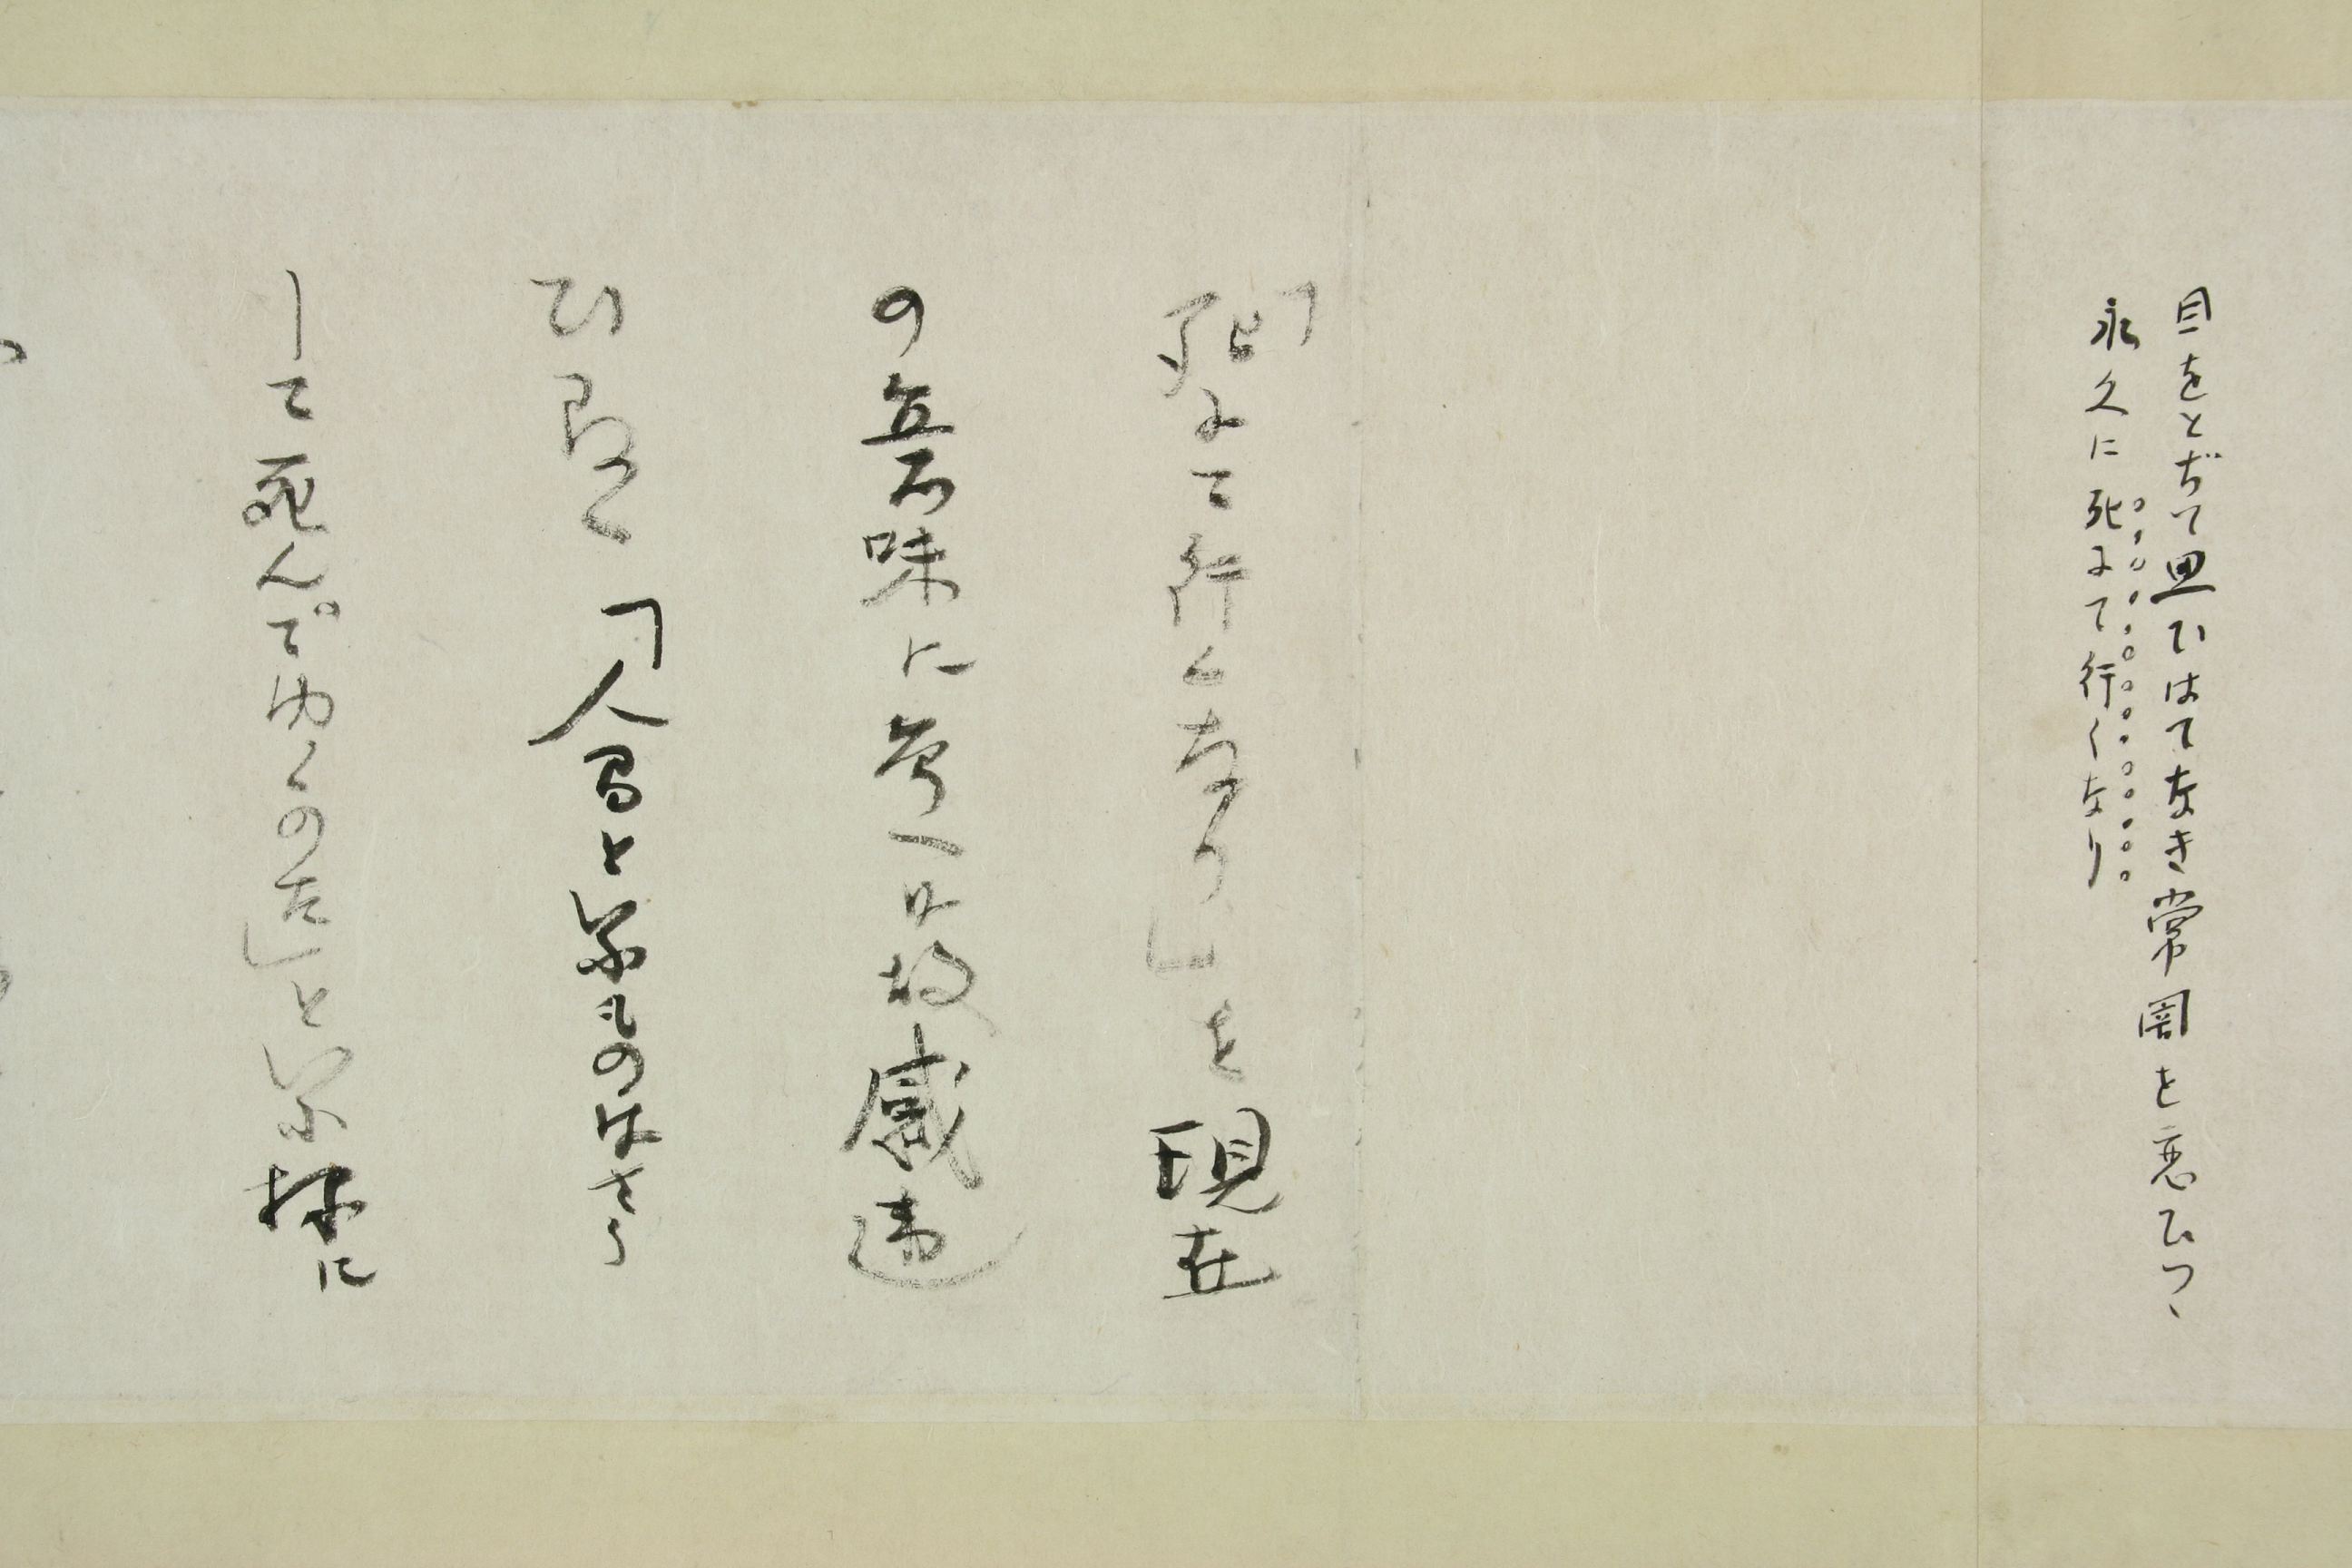 目をとぢて思ひはてなき常闇を恋ひつゝ
永久に死にて行くなり
「死にて行くなり」を現在
の意味に考へ故感違
ひ易く「人間といふものはさう
して死んでゆくのだ」といふ様に